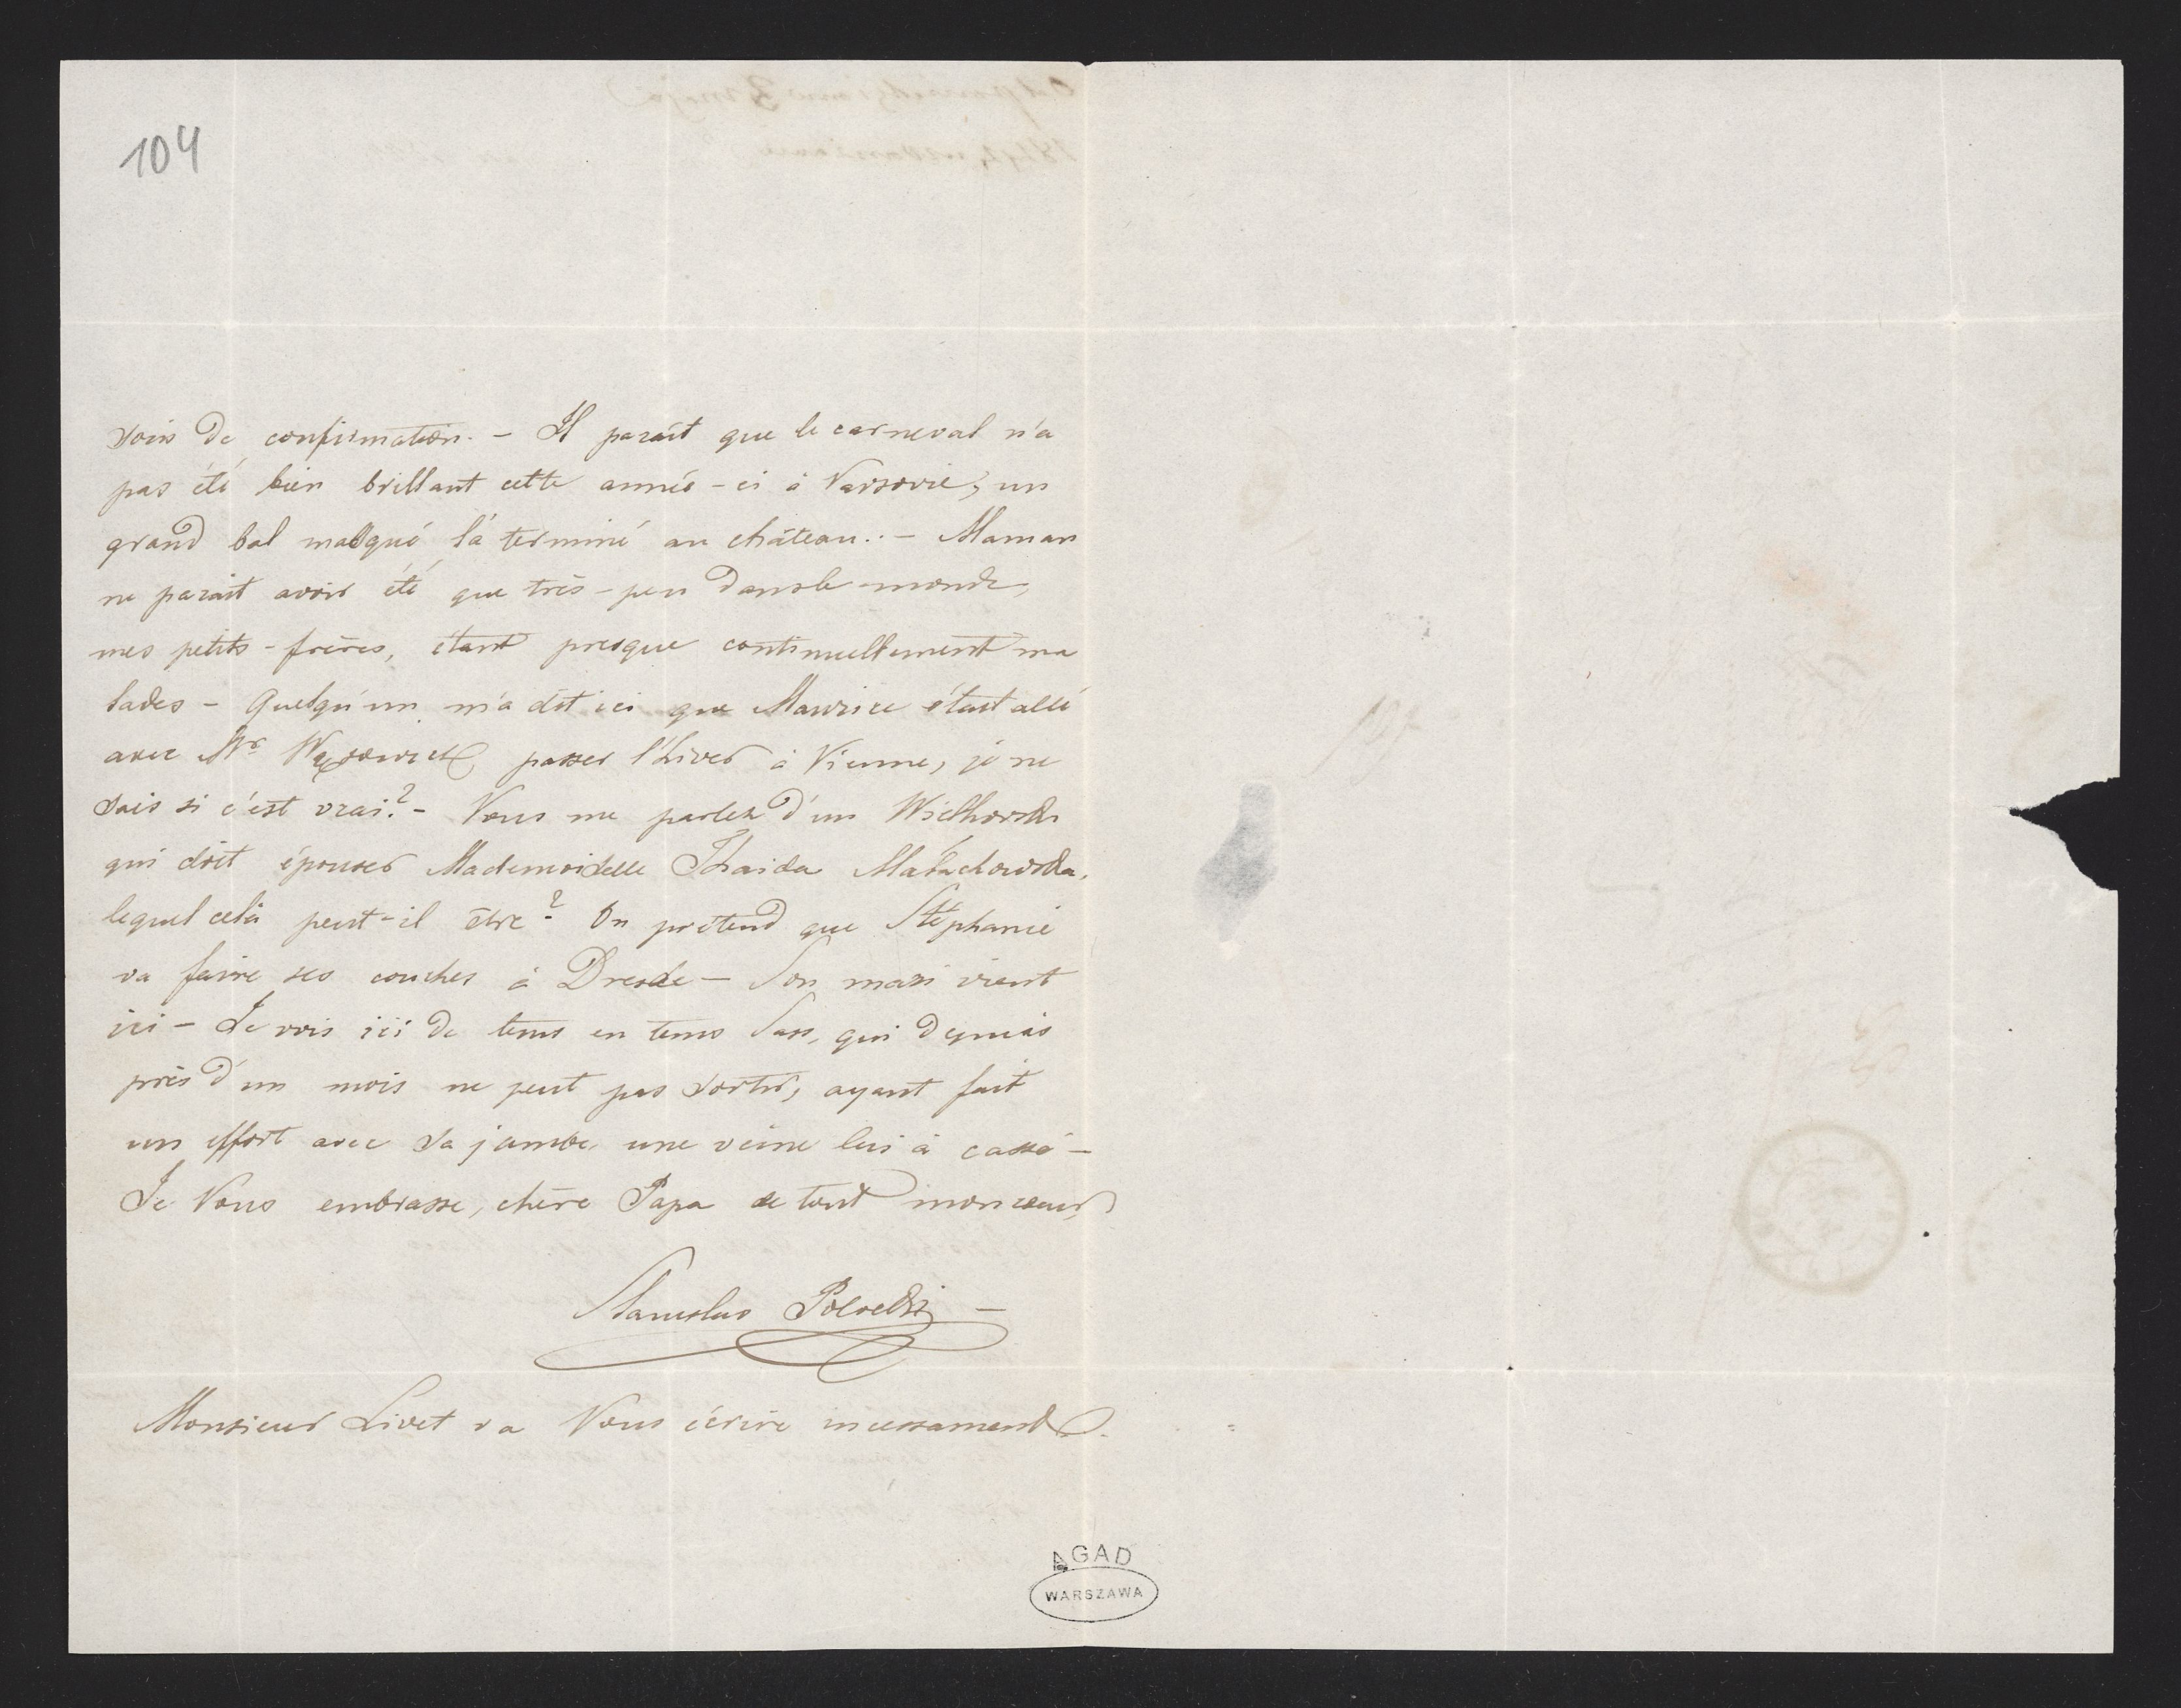 104
soin de confirmation. – Il paraît que le carneval n'a
pas été bien brillant cette année-ci à Varsovie; un
grand bal masqué l'a terminé au château.. – Maman
ne parait avoir été que très-peu dans le monde,
mes petits-frères, étant presque continuellement ma
lades – Quelqu'un m'a dit ici que Maurice était allé
avec Mr Wąsowicz passer l'hiver à Vienne, je ne
sais si c'est vrai? – Vous me parlez d'un Wielhorski
qui doit épouser Mademoiselle Thaida Małachowska,
lequel celà peut-il être? On prétend que Stéphanie
va faire ses couches à Dresde – Son mari vient
ici – Je vois ici de tems en tems Sass, qui depuis
près d'un mois ne peut pas sortir, ayant fait
un effort avec sa jambe, une veine lui à cassé –
Je Vous embrasse, chère Papa de tout mon coeur,
Stanislas Potocki –
Monsieur Livet va Vous écrire incessament.
AGAD
WARSZAWA